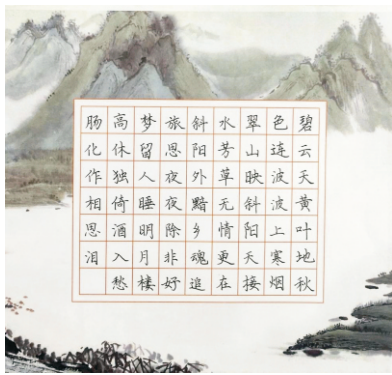 碧云天黄叶地秋
色连波波上寒烟
翠山映斜阳天接
水芳草无情更在
斜阳外黯乡魂追
旅思夜夜除非好
梦留人睡明月楼
高休独倚酒入愁
肠化作相思泪